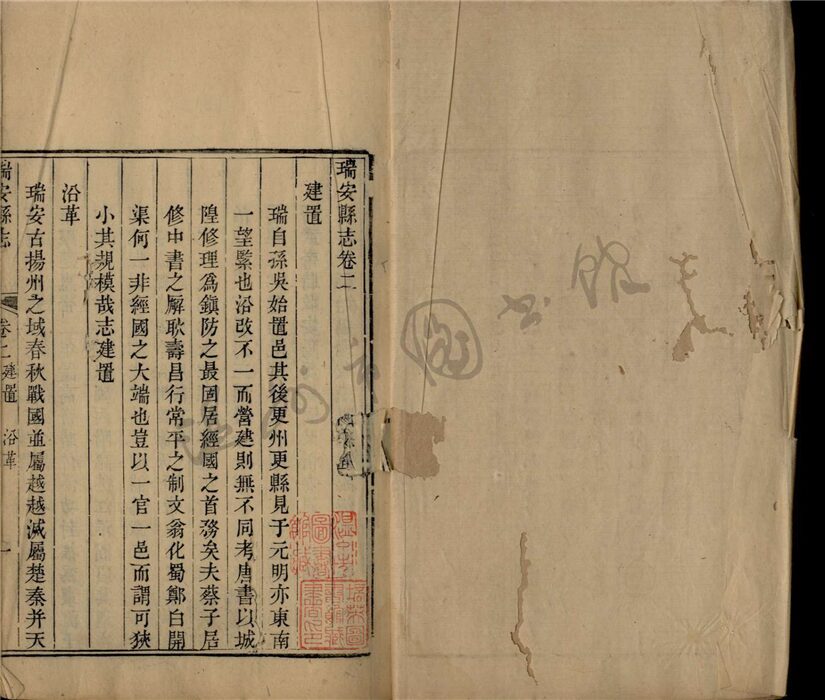 瑞安縣志卷二
建置
瑞自孫吳始置邑其後更州更縣見于元明亦東南
一望縣也沿改不一而營建則無不同考唐書以城
隍修理爲鎮防之最固居經國之首務矣夫蔡子居
修中書之廨耿壽昌行常平之制文翁化蜀鄭白開
渠何一非經國之大端也豈以一官一邑而謂可狹
小其規模哉志建置
沿革
瑞安古揚州之域春秋戰國並屬越越滅屬楚秦并天
瑞安縣志
卷二 建置 沿革 一